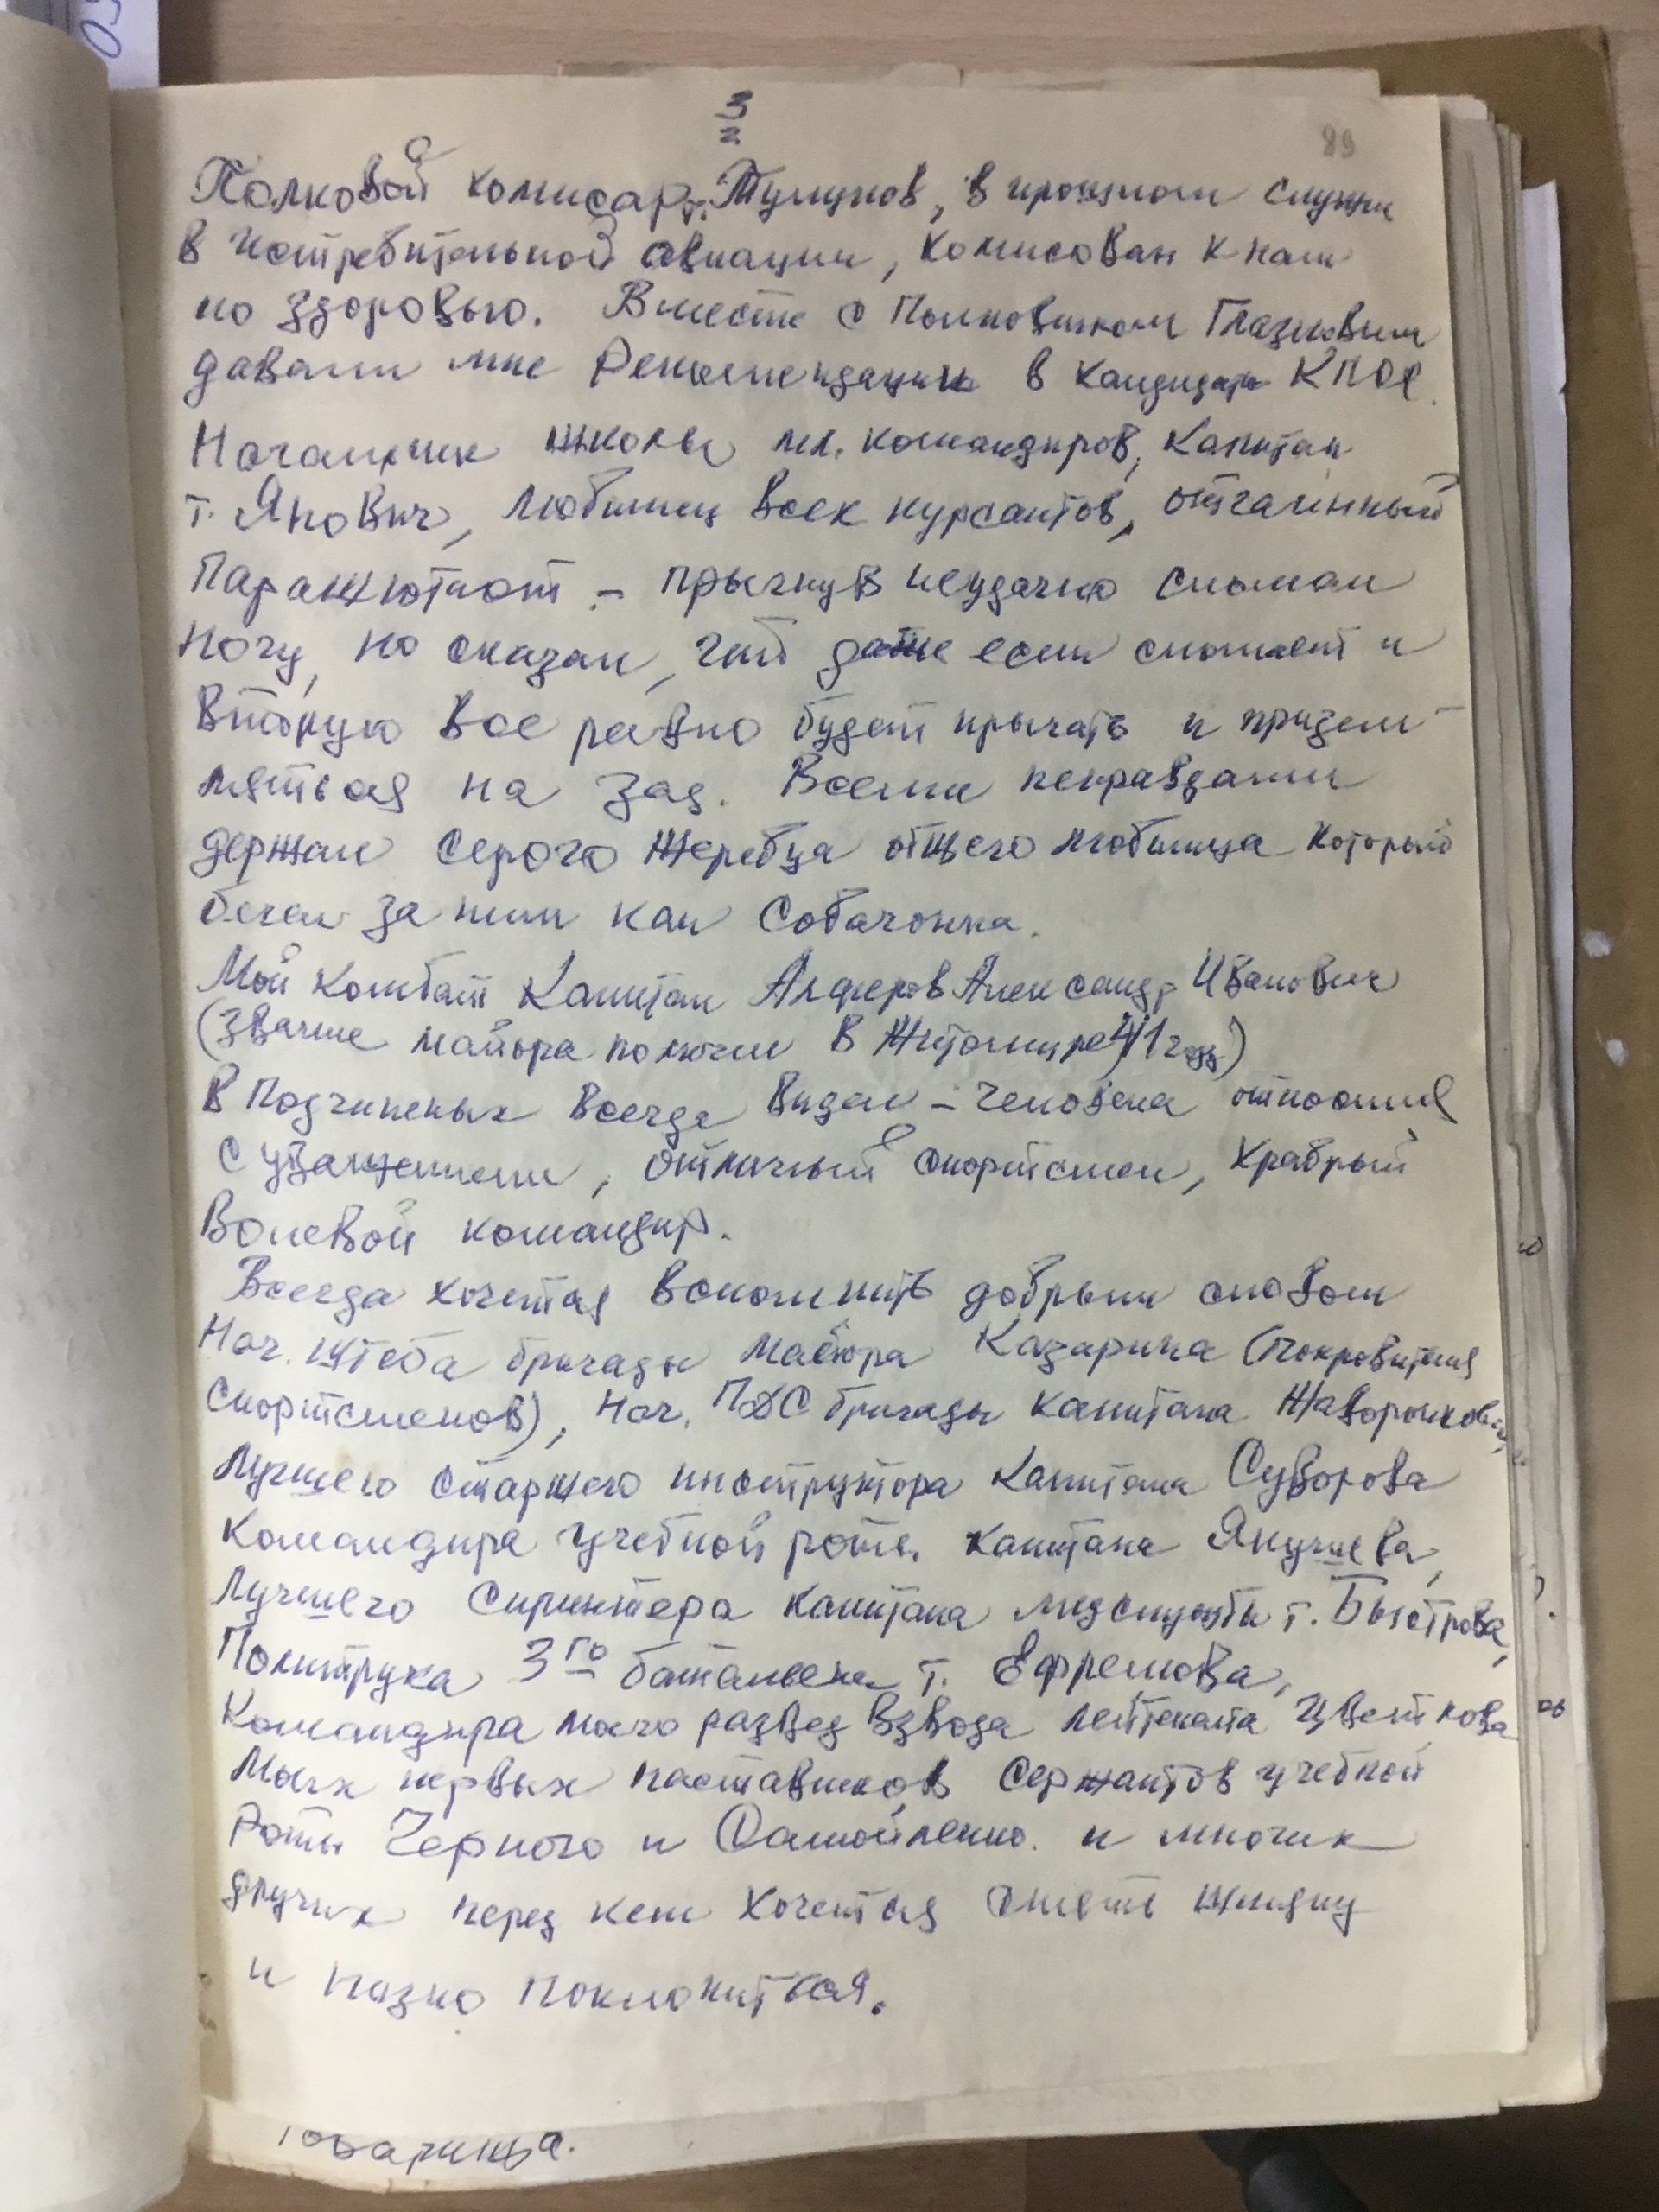 3/2
89
Полковой комисар т. Тулупов, в прошлом служил
в истребительной авиации, комисован к нам
по здоровью. Вместе с Полковником Глазковым
давали мне Рекомендации в кандидаты КПСС.
Начальник школы мл. командиров, Капитан
т. Янович, любимец всех курсантов, отчаянный
Паражютист – прыгнув неудачно сломал
ногу, но сказал, что даже если сломает и
вторую все равно будет прыгать и призем-
ляться на зад. Всеми неправдами
держал серого жеребца общего любимца который
бегал за ним как Собачонка.
Мой Комбат Капитан Алферов Александр Иванович
(звание майора получил в Житомире 41 году)
в Подчиненых всегда видел – человека относился
с уважением, отличный спортсмен, храбрый
Волевой командир.
Всегда хочется вспомнить добрым словом
Нач. штаба бригады майора Казарина (покровителя
спортсменов), Нач. ПДС бригады капитана Жаворонкова,
Лучшего старшего инструктора капитана Суворова
Командира учебной роты капитана Янушева,
Лучшего Спринтера капитана медслужбы т. Быстрова,
Политрука 3го баталиена т. Ефремова,
Командира моего развед взвода лейтенанта Цветкова
Моих первых наставников Сержантов учебной
Роты Черного и Самойленко. и многих
других перед кем хочется снять шляпу
и низко поклониться.
товарища.